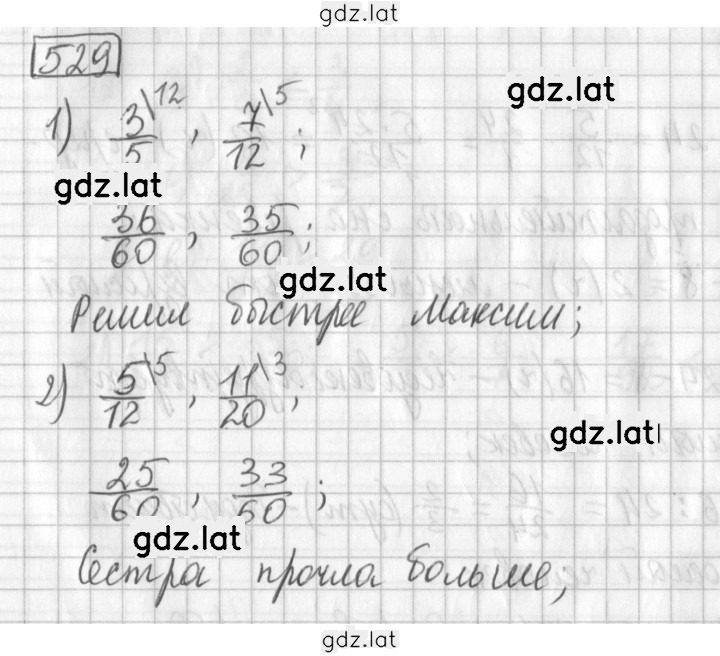 gdz.lat
529
gdz.lat
1) 3/5 \12, 7/12 \5;
gdz.lat
36/60, 35/60;
gdz.lat
Решил быстрее Максим;
2) 5/12 \5, 11/20 \3,
gdz.lat
25/60, 33/50;
gdz.lat
Сестра прочла больше;
gdz.lat